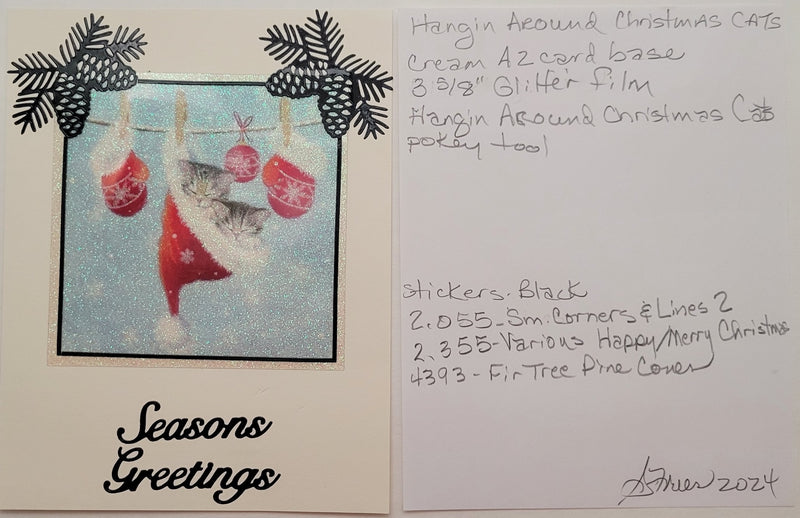 Seasons
Greetings
Hangin Around Christmas CATS
Cream A2 card base
3 5/8" Glitter Film
Hangin Around Christmas Cats
pokey tool
stickers. Black
2.055 - Sm. Corners & Lines 2
2.355 - Various Happy/Merry Christmas
4393 - Fir Tree Pine Cones
2024